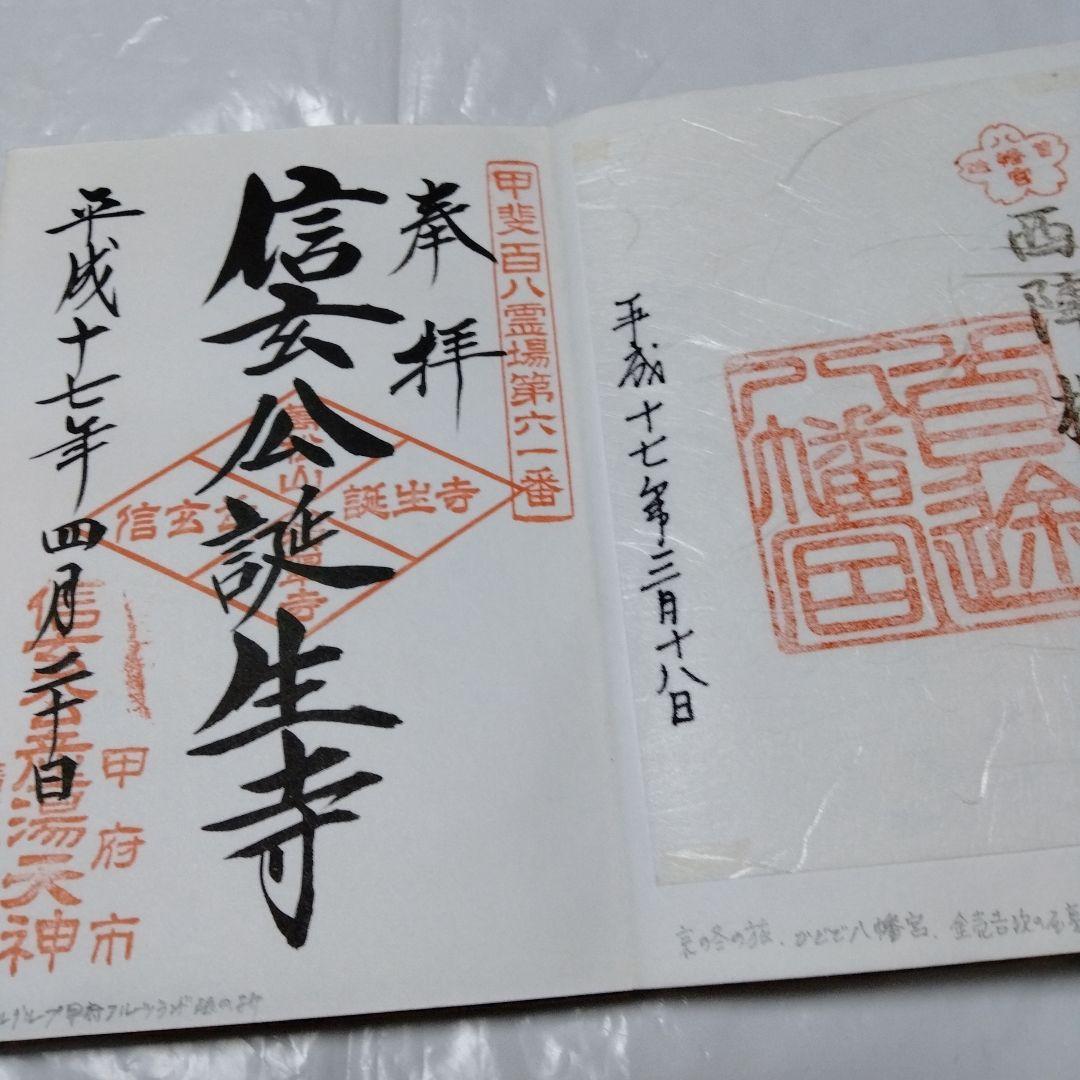 八幡宮
西陣
首途
八幡宮
平成十七年三月十八日
京の冬の旅、かどで八幡宮、金売吉次の
甲斐百八霊場第六一番
奉拝
信玄公誕生寺
信玄公 誕生寺
平成十七年四月二十日
甲府市
信玄公産湯天神